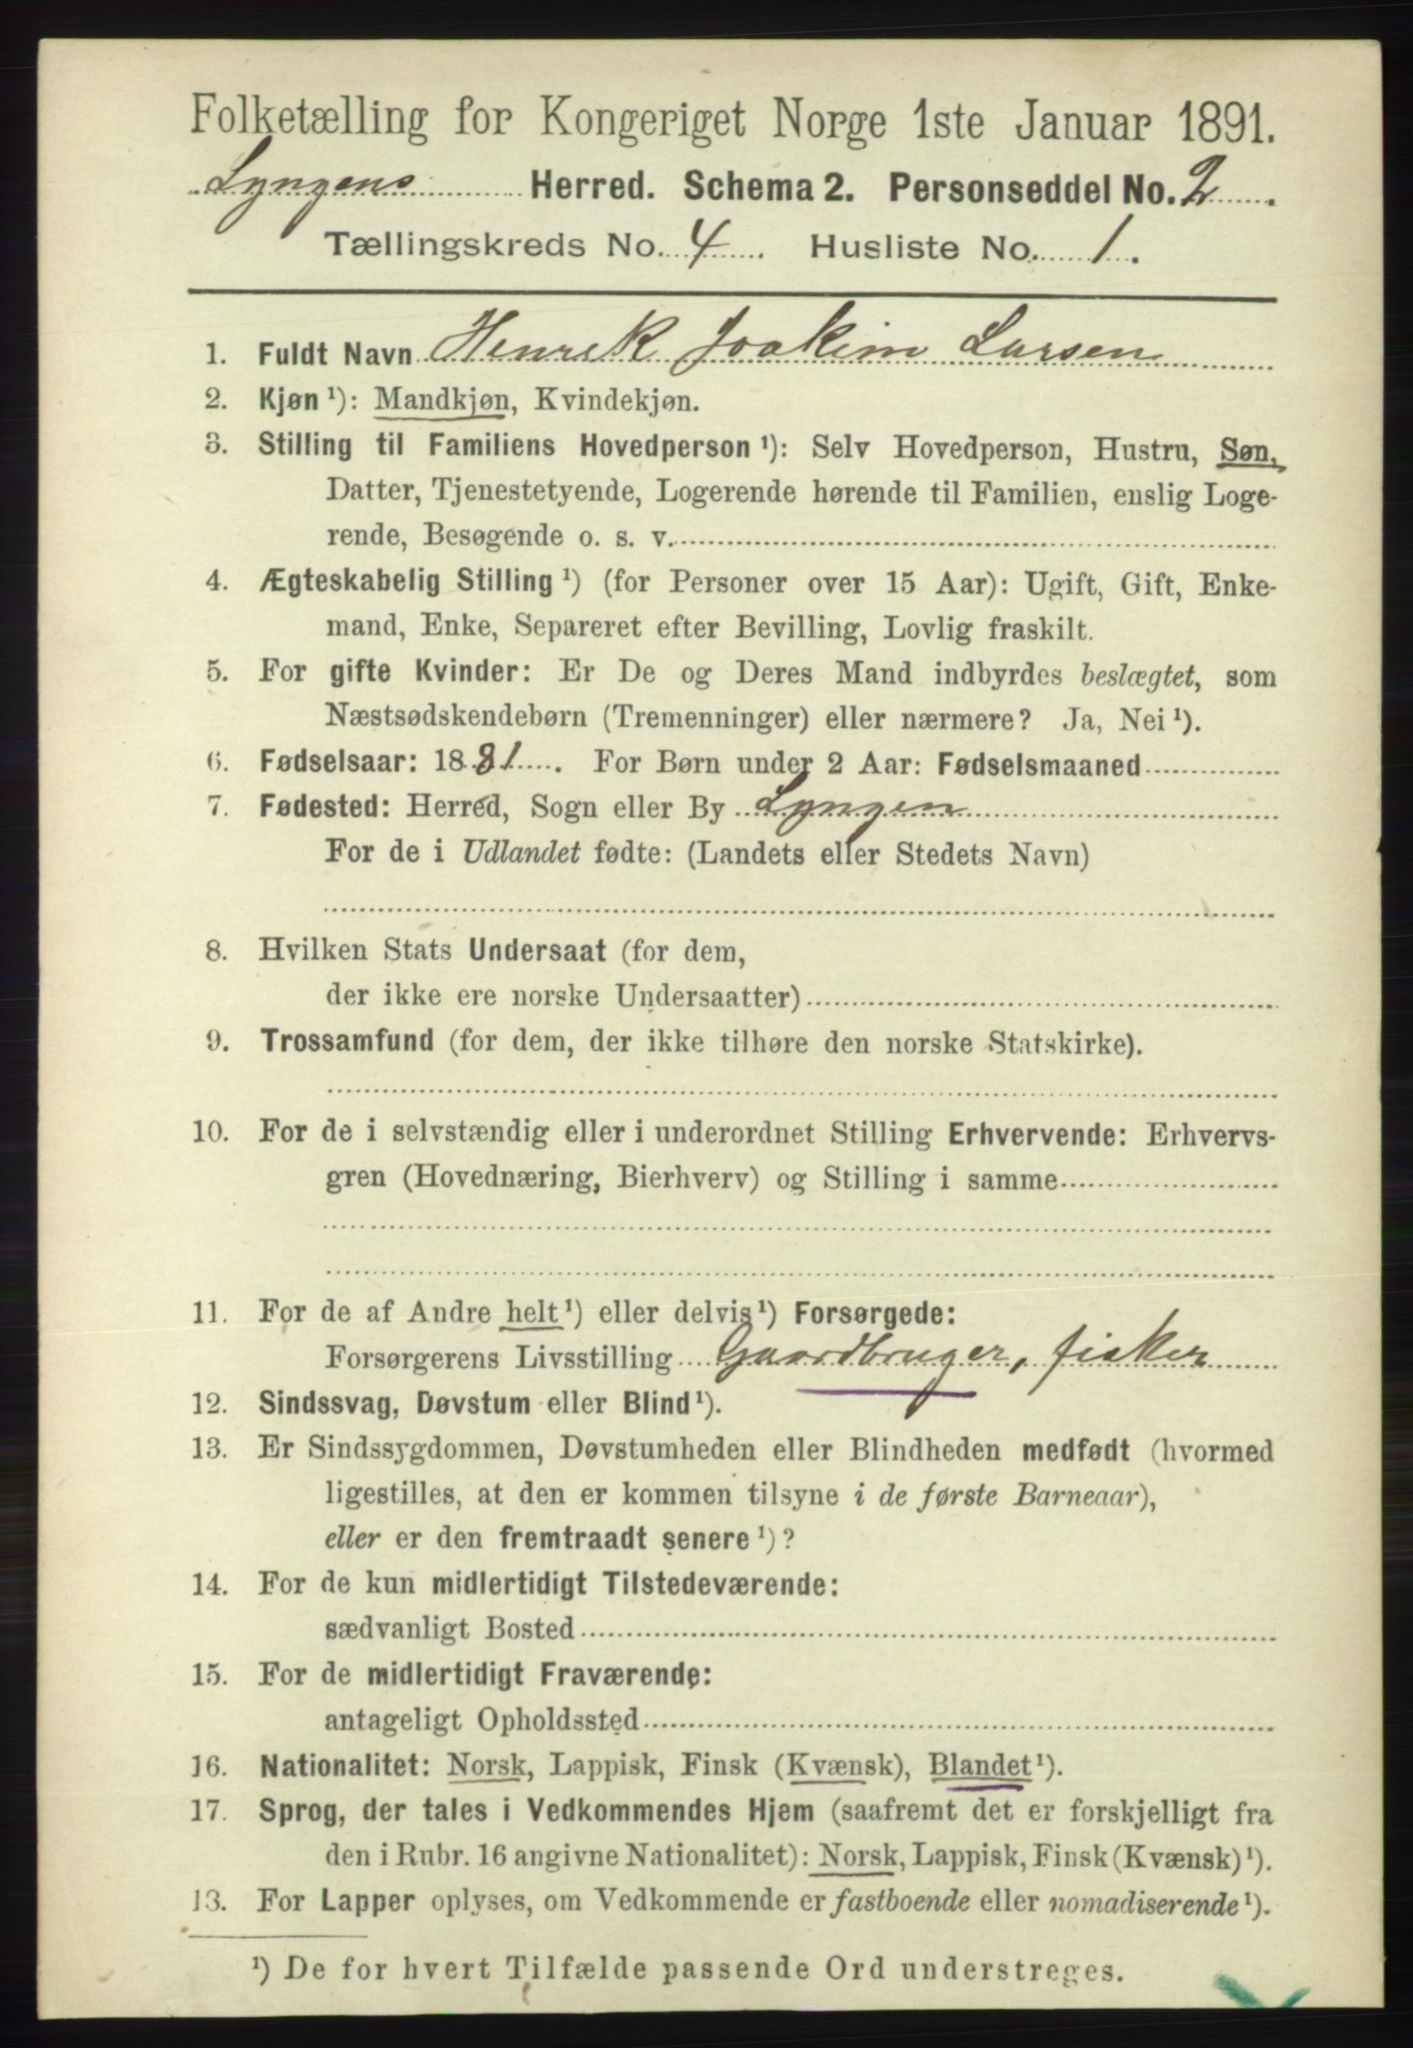 Folketælling for Kongeriget Norge 1ste Januar 1891.
Lyngens Herred. Schema 2. Personseddel No. 2.
Tællingskreds No. 4. Husliste No. 1.
1. Fuldt Navn Henrik Joakim Larsen
2. Kjøn ¹): Mandkjøn, Kvindekjøn.
3. Stilling til Familiens Hovedperson ¹): Selv Hovedperson, Hustru, Søn,
Datter, Tjenestetyende, Logerende hørende til Familien, enslig Loge-
rende, Besøgende o. s. v.
4. Ægteskabelig Stilling ¹) (for Personer over 15 Aar): Ugift, Gift, Enke-
mand, Enke, Separeret efter Bevilling, Lovlig fraskilt.
5. For gifte Kvinder: Er De og Deres Mand indbyrdes beslægtet, som
Næstsødskendebørn (Tremenninger) eller nærmere? Ja, Nei ¹).
6. Fødselsaar: 1881. For Børn under 2 Aar: Fødselsmaaned
7. Fødested: Herred, Sogn eller By Lyngen
For de i Udlandet fødte: (Landets eller Stedets Navn)
8. Hvilken Stats Undersaat (for dem,
der ikke ere norske Undersaatter)
9. Trossamfund (for dem, der ikke tilhøre den norske Statskirke).
10. For de i selvstændig eller i underordnet Stilling Erhvervende: Erhvervs-
gren (Hovednæring, Bierhverv) og Stilling i samme
11. For de af Andre helt ¹) eller delvis ¹) Forsørgede:
Forsørgerens Livsstilling Gaardbruger, fisker
12. Sindssvag, Døvstum eller Blind ¹).
13. Er Sindssygdommen, Døvstumheden eller Blindheden medfødt (hvormed
ligestilles, at den er kommen tilsyne i de første Barneaar),
eller er den fremtraadt senere ¹)?
14. For de kun midlertidigt Tilstedeværende:
sædvanligt Bosted
15. For de midlertidigt Fraværende:
antageligt Opholdssted
16. Nationalitet: Norsk, Lappisk, Finsk (Kvænsk), Blandet ¹).
17. Sprog, der tales i Vedkommendes Hjem (saafremt det er forskjelligt fra
den i Rubr. 16 angivne Nationalitet): Norsk, Lappisk, Finsk (Kvænsk) ¹).
13. For Lapper oplyses, om Vedkommende er fastboende eller nomadiserende ¹).
¹) De for hvert Tilfælde passende Ord understreges.